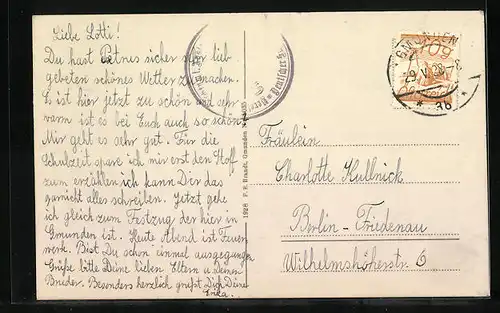 Liebe Lotti!
Du hast Petrus sicher sehr lieb
gebeten schönes Wetter zu machen.
Es ist hier jetzt zu schön und sehr
warm ist es bei Euch auch so schön?
Mir geht es sehr gut. Für die
Schulzeit spare ich mir erst den Stoff
zum erzählen ich kann Dir das
garnicht alles schreiben. Jetzt gehe
ich gleich zum Festzug der hier in
Gmunden ist. Heute Abend ist Feuer
werk. Bist Du schon einmal ausgegangen
Grüße bitte Deine lieben Eltern u. Deinen
Bruder. Besonders herzlich grüßt Dich Deine
Erika.
1928 F. E. Brandt, Gmunden
GMUNDEN
29.V.28
* 3b *
Fräulein
Charlotte Kullnick
Berlin-Friedenau
Wilhelmshöherstr. 6